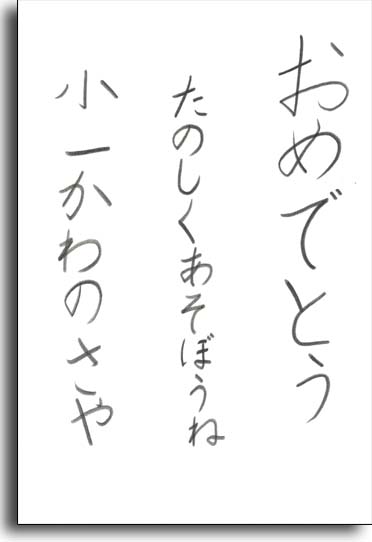 おめでとう
たのしくあそぼうね
小一かわのさや